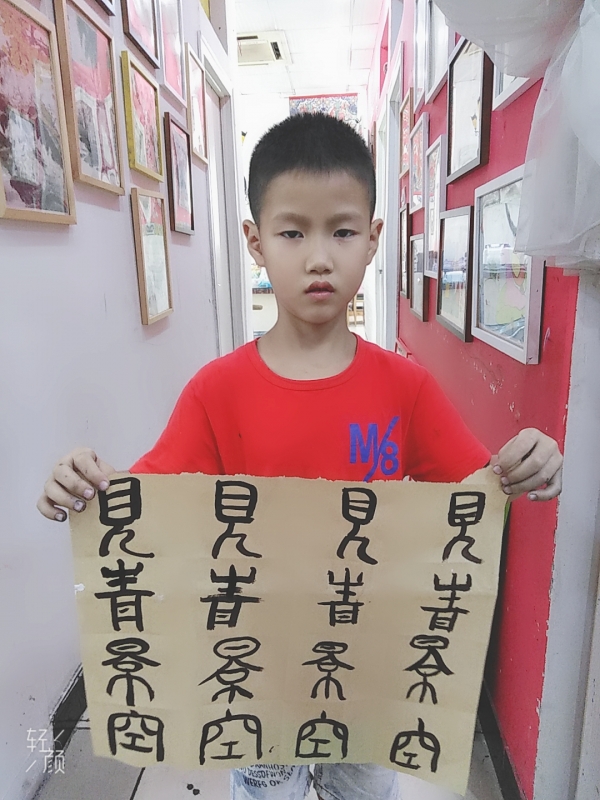 見青景空
見青景空
見青景空
見青景空
M/8
轻颜